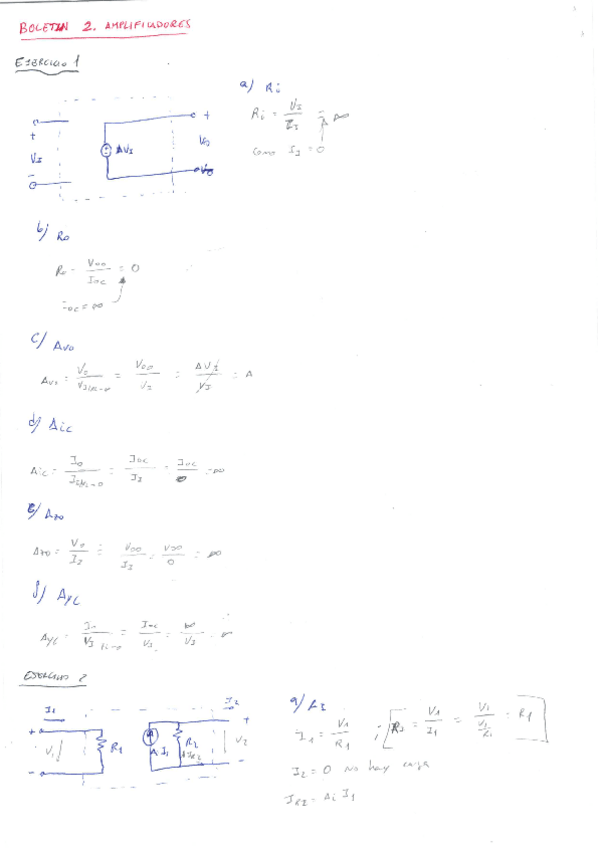 BOLETIN 2. AMPLIFICADORES
EJERCICIO 1
a) Ri
+
VI
-
AVI
+
Vo
Ri = VI / II = ∞
Como II = 0
b) Ro
Ro = Voo / Ioc = 0
Ioc = ∞
c) Avo
Avo = Vo / VI = Voo / VI = AVI / VI = A
d) Aic
Aic = Io / II = Ioc / II = Ioc / 0 = ∞
e) Azo
Azo = Vo / II = Voo / II = Voo / 0 = ∞
f) Ayc
Ayc = Io / VI = Ioc / VI = ∞ / VI = ∞
EJERCICIO 2
I1
I2
+
V1
-
R1
Ai I1
R2
IR2
+
V2
-
a)
I1 = V1 / R1 ; = V1 / I1 = V1 / (V1 / R1) = R1
I2 = 0 No hay carga
IR2 = Ai I1